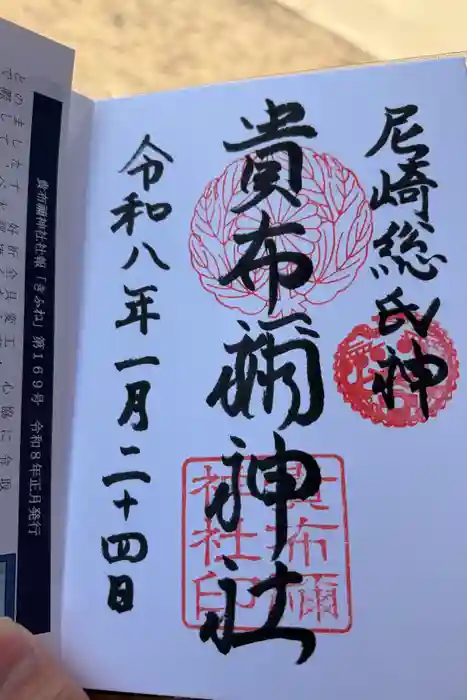 尼崎総氏神
貴布禰神社
貴布禰
神社印
令和八年一月二十四日
貴布禰神社社報「きふね」第169号 令和8年正月発行